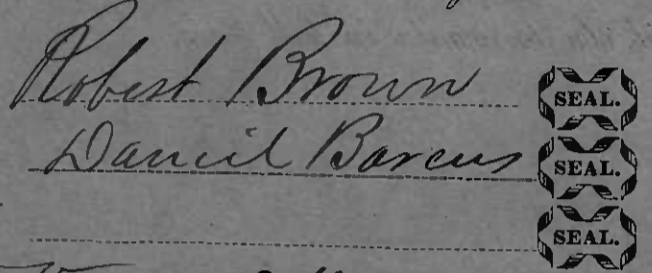 Robert Brown SEAL.
Daniel Barcus SEAL.
SEAL.